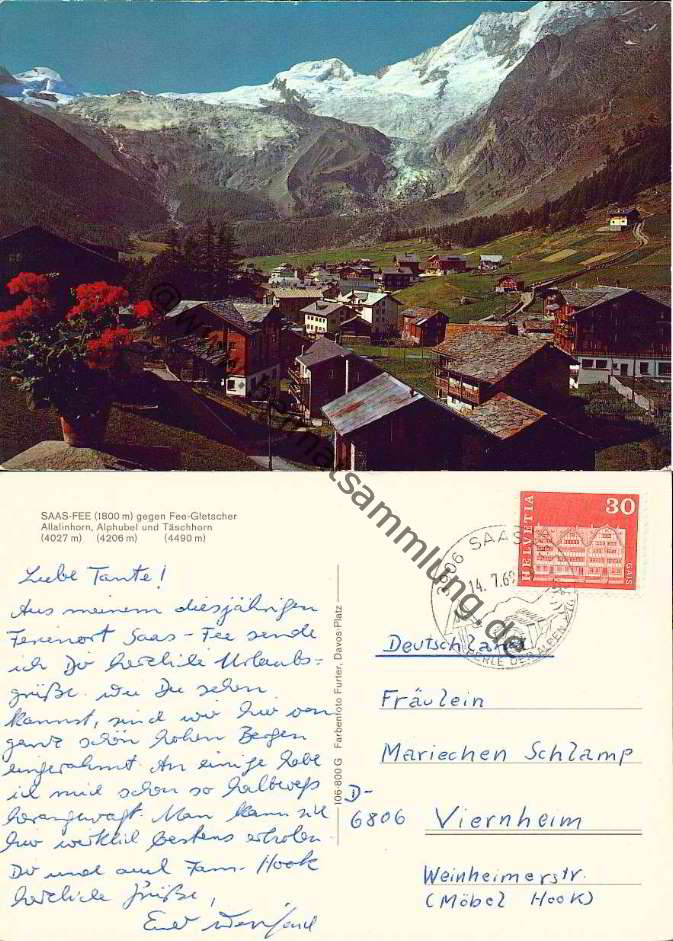 SAAS-FEE (1800 m) gegen Fee-Gletscher
Allalinhorn, Alphubel und Täschhorn
(4027 m) (4206 m) (4490 m)
HELVETIA 30
GAIS
3906 SAAS
14.7.6
PERLE DER ALPEN
Liebe Tante!
Aus meinem diesjährigen
Ferienort Saas-Fee sende
ich Dir herzliche Urlaubs=
grüße. Wie Du sehen
kannst, sind wir hier von
ganz schön hohen Bergen
eingerahmt. An einige habe
ich mich schon so halbwegs
herangewagt. Man kann sich
hier wirklich bestens erholen.
Dir und auch Fam. Hook
herzliche Grüße,
Euer
106-800 G Farbenfoto Furter, Davos-Platz
Deutschland
Fräulein
Mariechen Schlamp
D-
6806 Viernheim
Weinheimerstr.
(Möbel Hook)
ansichtskartensammlung.de